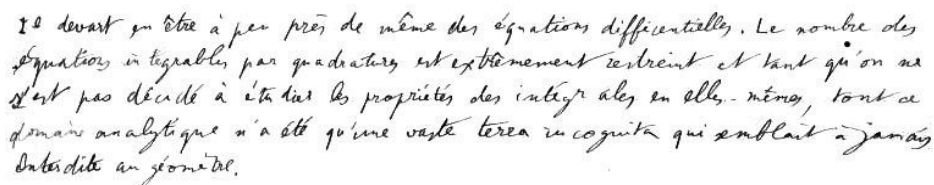 Il devait en être à peu près de même des équations différentielles. Le nombre des
équations intégrables par quadratures est extrêmement restreint et tant qu'on ne
s'est pas décidé à étudier les propriétés des intégrales en elles-mêmes, tout ce
domaine analytique n'a été qu'une vaste terra incognita qui semblait à jamais
interdite au géomètre.